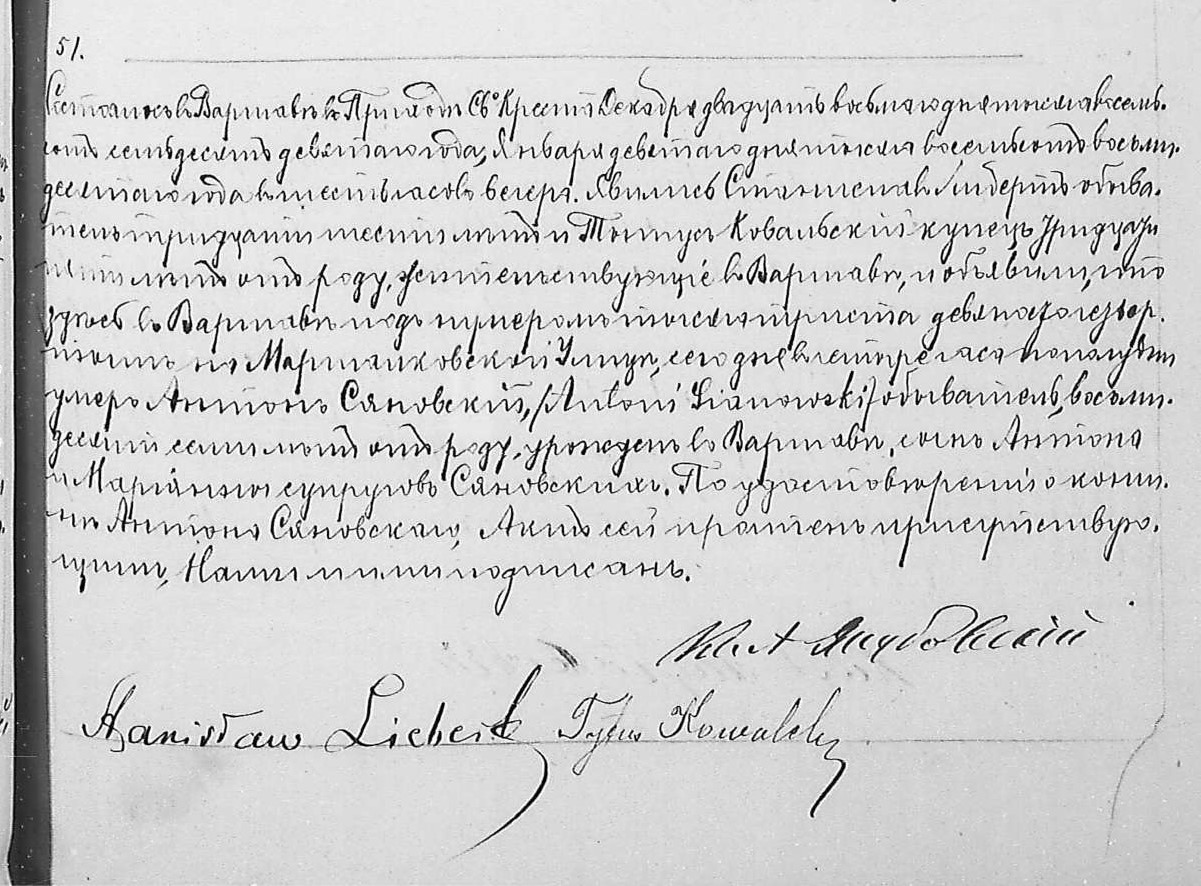 51.
Состоялось въ Варшавѣ въ Приходѣ Св. Креста Декабря двадцать восьмаго дня тысяча восемь-
сотъ семьдесятъ девятаго года, Января девятаго дня тысяча восемьсотъ восемь-
десятаго года въ шесть часовъ вечера. Явились Станиславъ Либертъ обыва-
тель тридцати шести лѣтъ и Титусъ Ковальскій купецъ тридцати
лѣтъ отъ роду, жительствующіе въ Варшавѣ, и объявили, что
здѣсь въ Варшавѣ подъ нумеромъ тысяча триста девяносто четвер-
тымъ на Маршалковской Улицѣ, сего дня въ четыре часа пополудни
умеръ Антонъ Сяновскій, /Antoni Sianowski/ обыватель, восемь-
десяти семи лѣтъ отъ роду, урожденъ въ Варшавѣ, сынъ Антона
и Маріанны супруговъ Сяновскихъ. По удостовѣреніи о кончи-
нѣ Антона Сяновскаго, Актъ сей прочтенъ присутствую-
щимъ, Нами и ими подписанъ.
Кс. А Якубовскій
Stanisław Liebert Tytus Kowalski